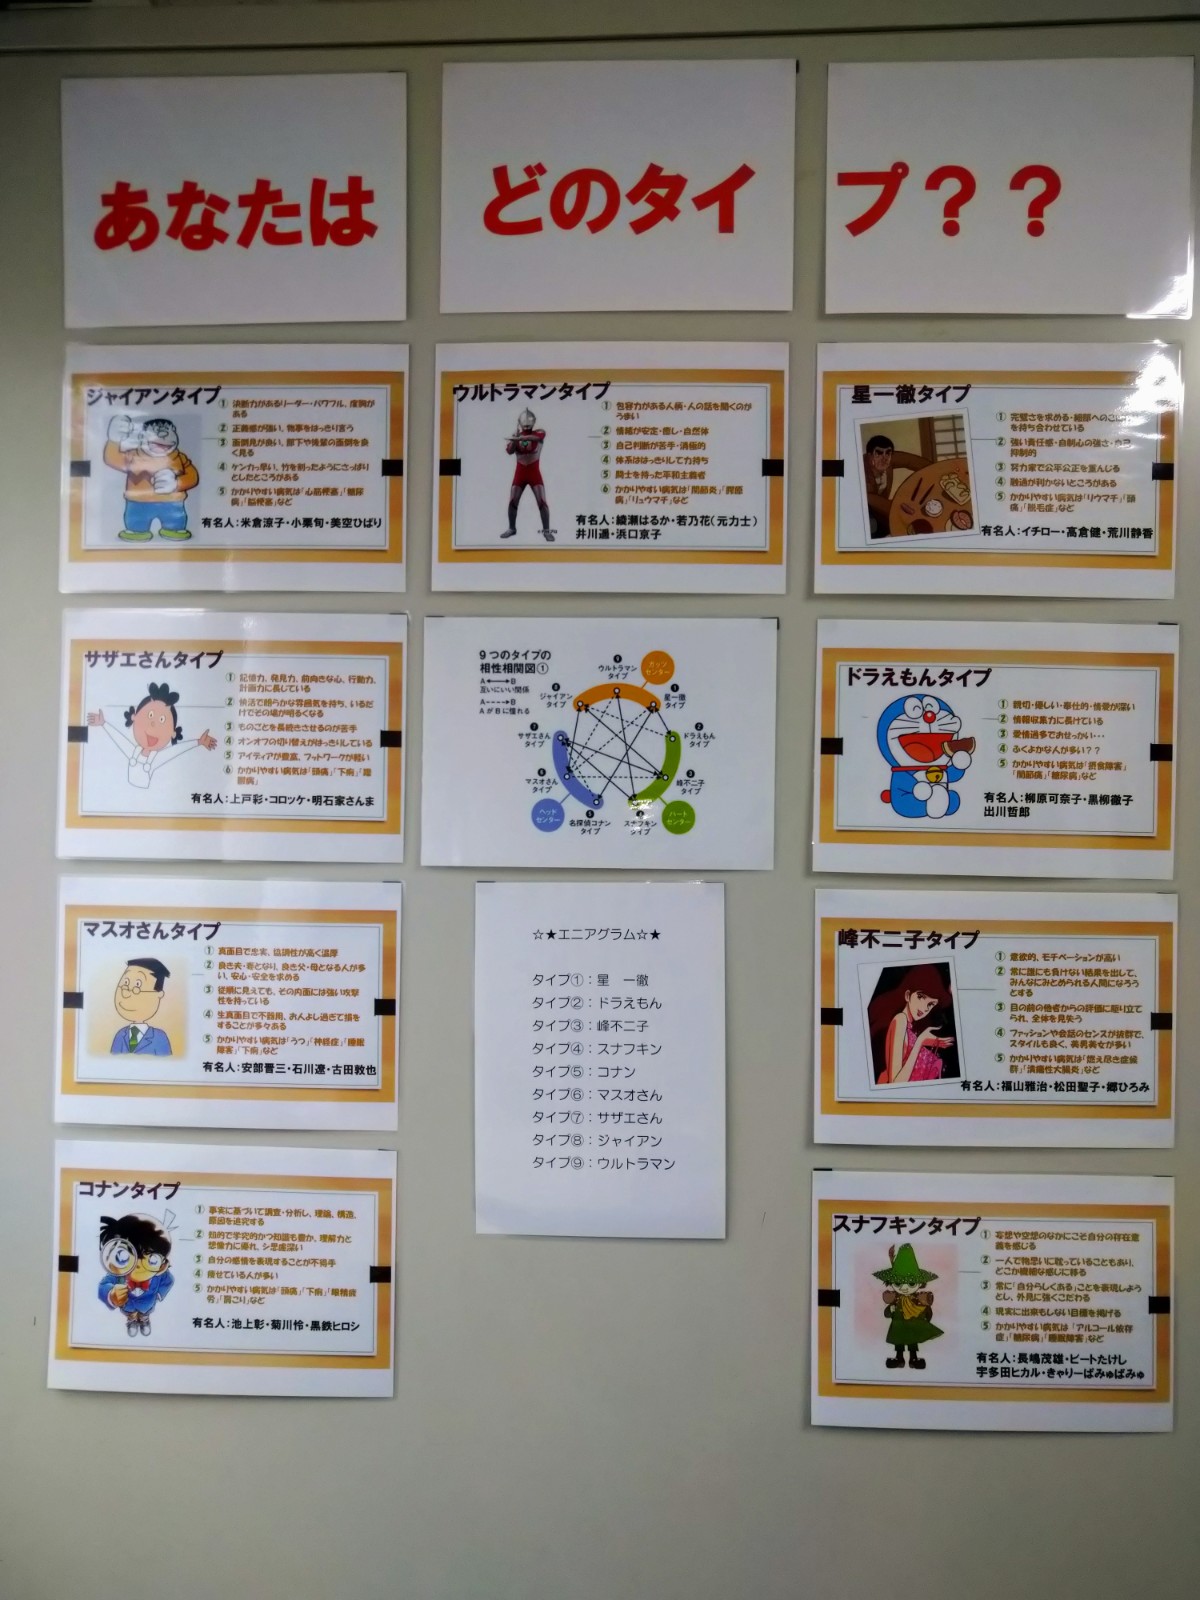 あなたは
どのタイ
プ??
ジャイアンタイプ
① 決断力があるリーダー・パワフル、度胸が
ある
② 正義感が強い、物事をはっきり言う
③ 面倒見が良い、部下や後輩の面倒を良
く見る
④ ケンカっ早い、竹を割ったようにさっぱり
としたところがある
⑤ かかりやすい病気は「心筋梗塞」「糖尿
病」「脳梗塞」など
有名人:米倉涼子・小栗旬・美空ひばり
ウルトラマンタイプ
① 包容力がある人柄・人の話を聞くのが
うまい
② 情緒が安定・癒し・自然体
③ 自己判断が苦手・消極的
④ 体系はほっきりして力持ち
⑤ 闘士を持った平和主義者
⑥ かかりやすい病気は「関節炎」「膠原
病」「リュウマチ」など
有名人:綾瀬はるか・若乃花(元力士)
井川遥・浜口京子
星一徹タイプ
① 完璧さを求める・細部へのこだわり
を持ち合わせている
② 強い責任感・自制心の強さ・自己
抑制的
③ 努力家で公平公正を重んじる
④ 融通が利かないところがある
⑤ かかりやすい病気は「リウマチ」「頭
痛」「脱毛症」など
有名人:イチロー・高倉健・荒川静香
サザエさんタイプ
① 記憶力、発見力、前向きな心、行動力、
計画力に長じている
② 快活で朗らかな雰囲気を持ち、いるだ
けでその場が明るくなる
③ ものごとを長続きさせるのが苦手
④ オンオフの切り替えがはっきりしている
⑤ アイディアが豊富、フットワークが軽い
⑥ かかりやすい病気は「頭痛」「下痢」
有名人:上戸彩・コロッケ・明石家さんま
9つのタイプの
相性相関図①
A⟷B
互いにいい関係
A---▸B
AがBに憧れる
⑨
ウルトラマン
タイプ
ガッツ
センター
⑧
ジャイアン
タイプ
①
星一徹
タイプ
⑦
サザエさん
タイプ
②
ドラえもん
タイプ
⑥
マスオさん
タイプ
③
峰不二子
タイプ
ヘッド
センター
⑤
名探偵コナン
タイプ
④
スナフキン
タイプ
ハート
センター
ドラえもんタイプ
① 親切・優しい・奉仕的・情愛が深い
② 情報収集力に長けている
③ 愛情過多でおせっかい・・・
④ ふくよかな人が多い??
⑤ かかりやすい病気は「摂食障害」
「関節痛」「糖尿病」など
有名人:柳原可奈子・黒柳徹子
出川哲郎
マスオさんタイプ
① 真面目で忠実、協調性が高く温厚
② 良き夫・妻となり、良き父・母となる人が多
い、安心・安全を求める
③ 従順に見えても、その内面には強い攻撃
性を持っている
④ 生真面目で不器用、お人よし過ぎて損を
することが多々ある
⑤ かかりやすい病気は「うつ」「神経症」「睡眠
障害」「下痢」など
有名人:安部晋三・石川遼・古田敦也
☆★エニアグラム☆★
タイプ①:星 一徹
タイプ②:ドラえもん
タイプ③:峰不二子
タイプ④:スナフキン
タイプ⑤:コナン
タイプ⑥:マスオさん
タイプ⑦:サザエさん
タイプ⑧:ジャイアン
タイプ⑨:ウルトラマン
峰不二子タイプ
① 意欲的、モチベーションが高い
② 常に誰にも負けない結果を出して、
みんなにみとめられる人間になろう
とする
③ 目の前の他者からの評価に駆り立て
られ、全体を見失う
④ ファッションや会話のセンスが抜群で、
スタイルも良く、美男美女が多い
⑤ かかりやすい病気は「燃え尽き症候
群」「潰瘍性大腸炎」など
有名人:福山雅治・松田聖子・郷ひろみ
コナンタイプ
① 事実に基づいて調査・分析し、理論、構造、
原因を追究する
② 知的で学究的かつ知識も豊か、理解力と
想像力に優れ、シ思慮深い
③ 自分の感情を表現することが不得手
④ 痩せている人が多い
⑤ かかりやすい病気は「頭痛」「下痢」「眼精疲
労」「肩こり」など
有名人:池上彰・菊川怜・黒鉄ヒロシ
スナフキンタイプ
① 妄想や空想のなかにこそ自分の存在意
義を感じる
② 一人で物思いに耽っていることもあり、
どこか繊細な感じに移る
③ 常に「自分らしくある」ことを表現しよう
とし、外見に強くこだわる
④ 現実に出来もしない目標を掲げる
⑤ かかりやすい病気は「アルコール依存
症」「糖尿病」「睡眠障害」など
有名人:長嶋茂雄・ビートたけし
宇多田ヒカル・きゃりーぱみゅぱみゅ